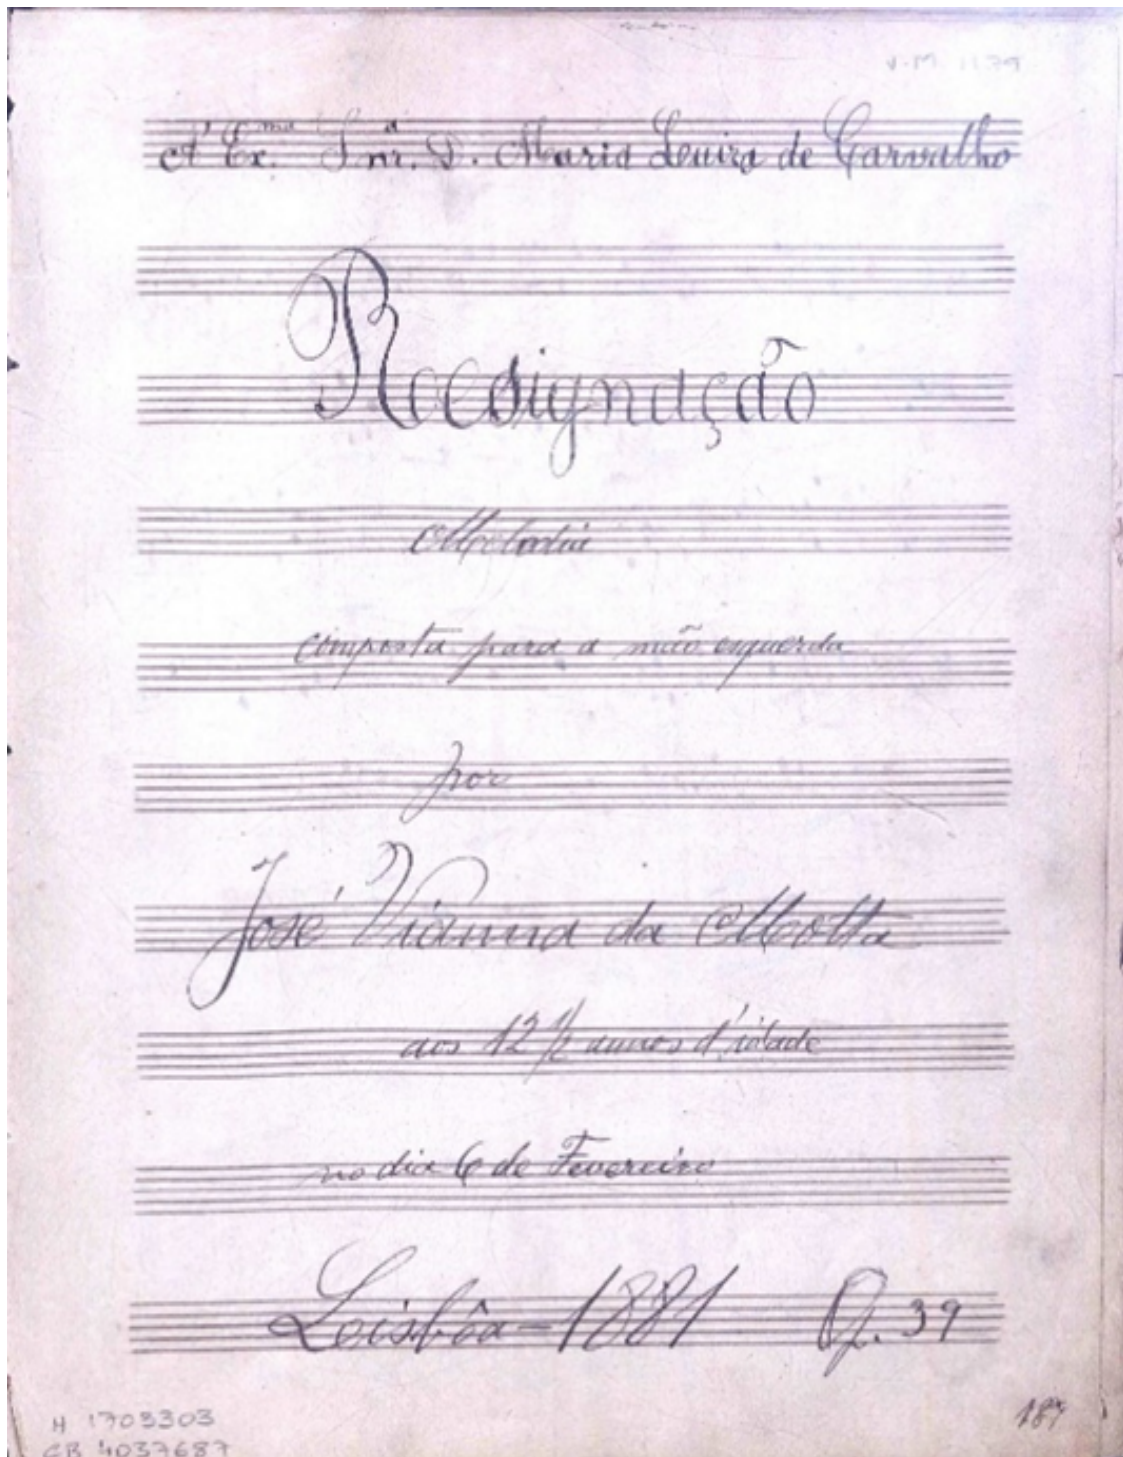 V.M. 1179
A' Ex.ma Snr.a D. Maria Louiza de Carvalho
Resignação
Melodia
composta para a mão esquerda
por
José Vianna da Motta
aos 12 1/2 annos d'idade
no dia 6 de Fevereiro
Lisbôa - 1881 Op. 39
H 1703303
CB 4037687